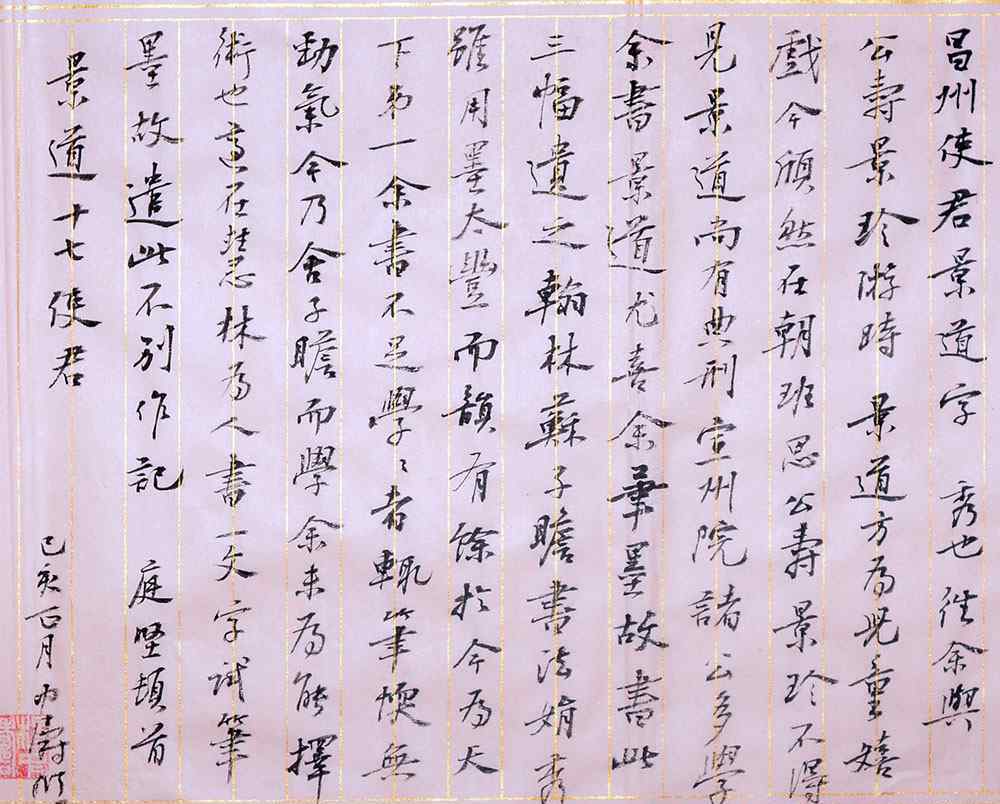 昌州使君景道字 秀也往余與
公壽景珍游時 景道方為兒童嬉
戲今頎然在朝班思公壽景珍不得
見景道尚有典刑宣州院諸公多學
余書 景道尤喜余筆墨故書此
三幅遺之翰林蘇子瞻書法娟秀
雖用墨太豐而韻有餘於今為天
下第一余書不足學學者輒筆愞無
勁氣今乃舍子瞻而學余未為能擇
術也適在慧林為人書一文字試筆
墨故遣此不別作記 庭堅頓首
景道十七使君
己亥 月